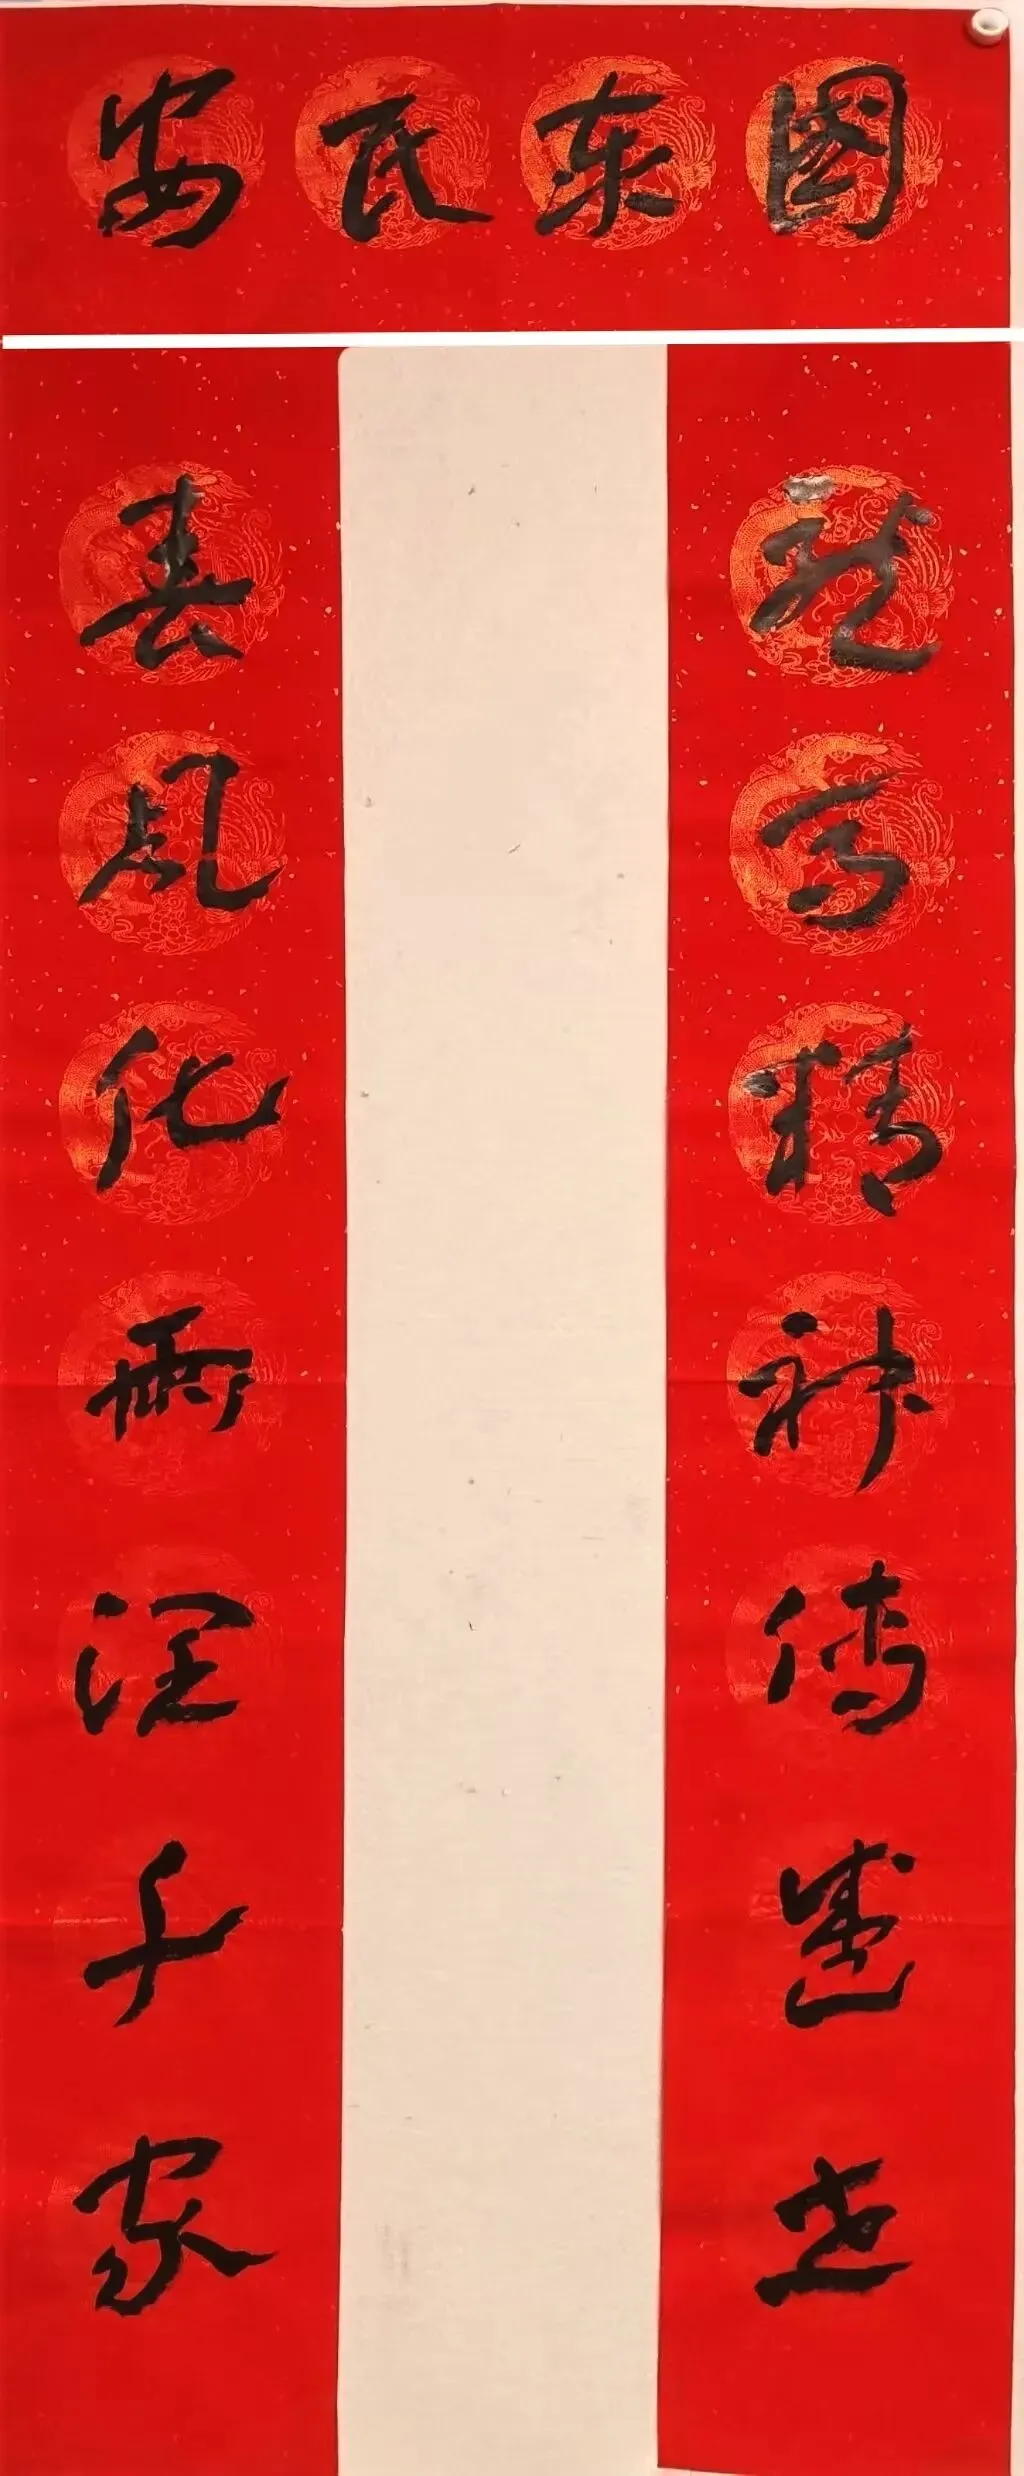 國泰民安
龍馬精神傳盛世
春風化雨潤千家